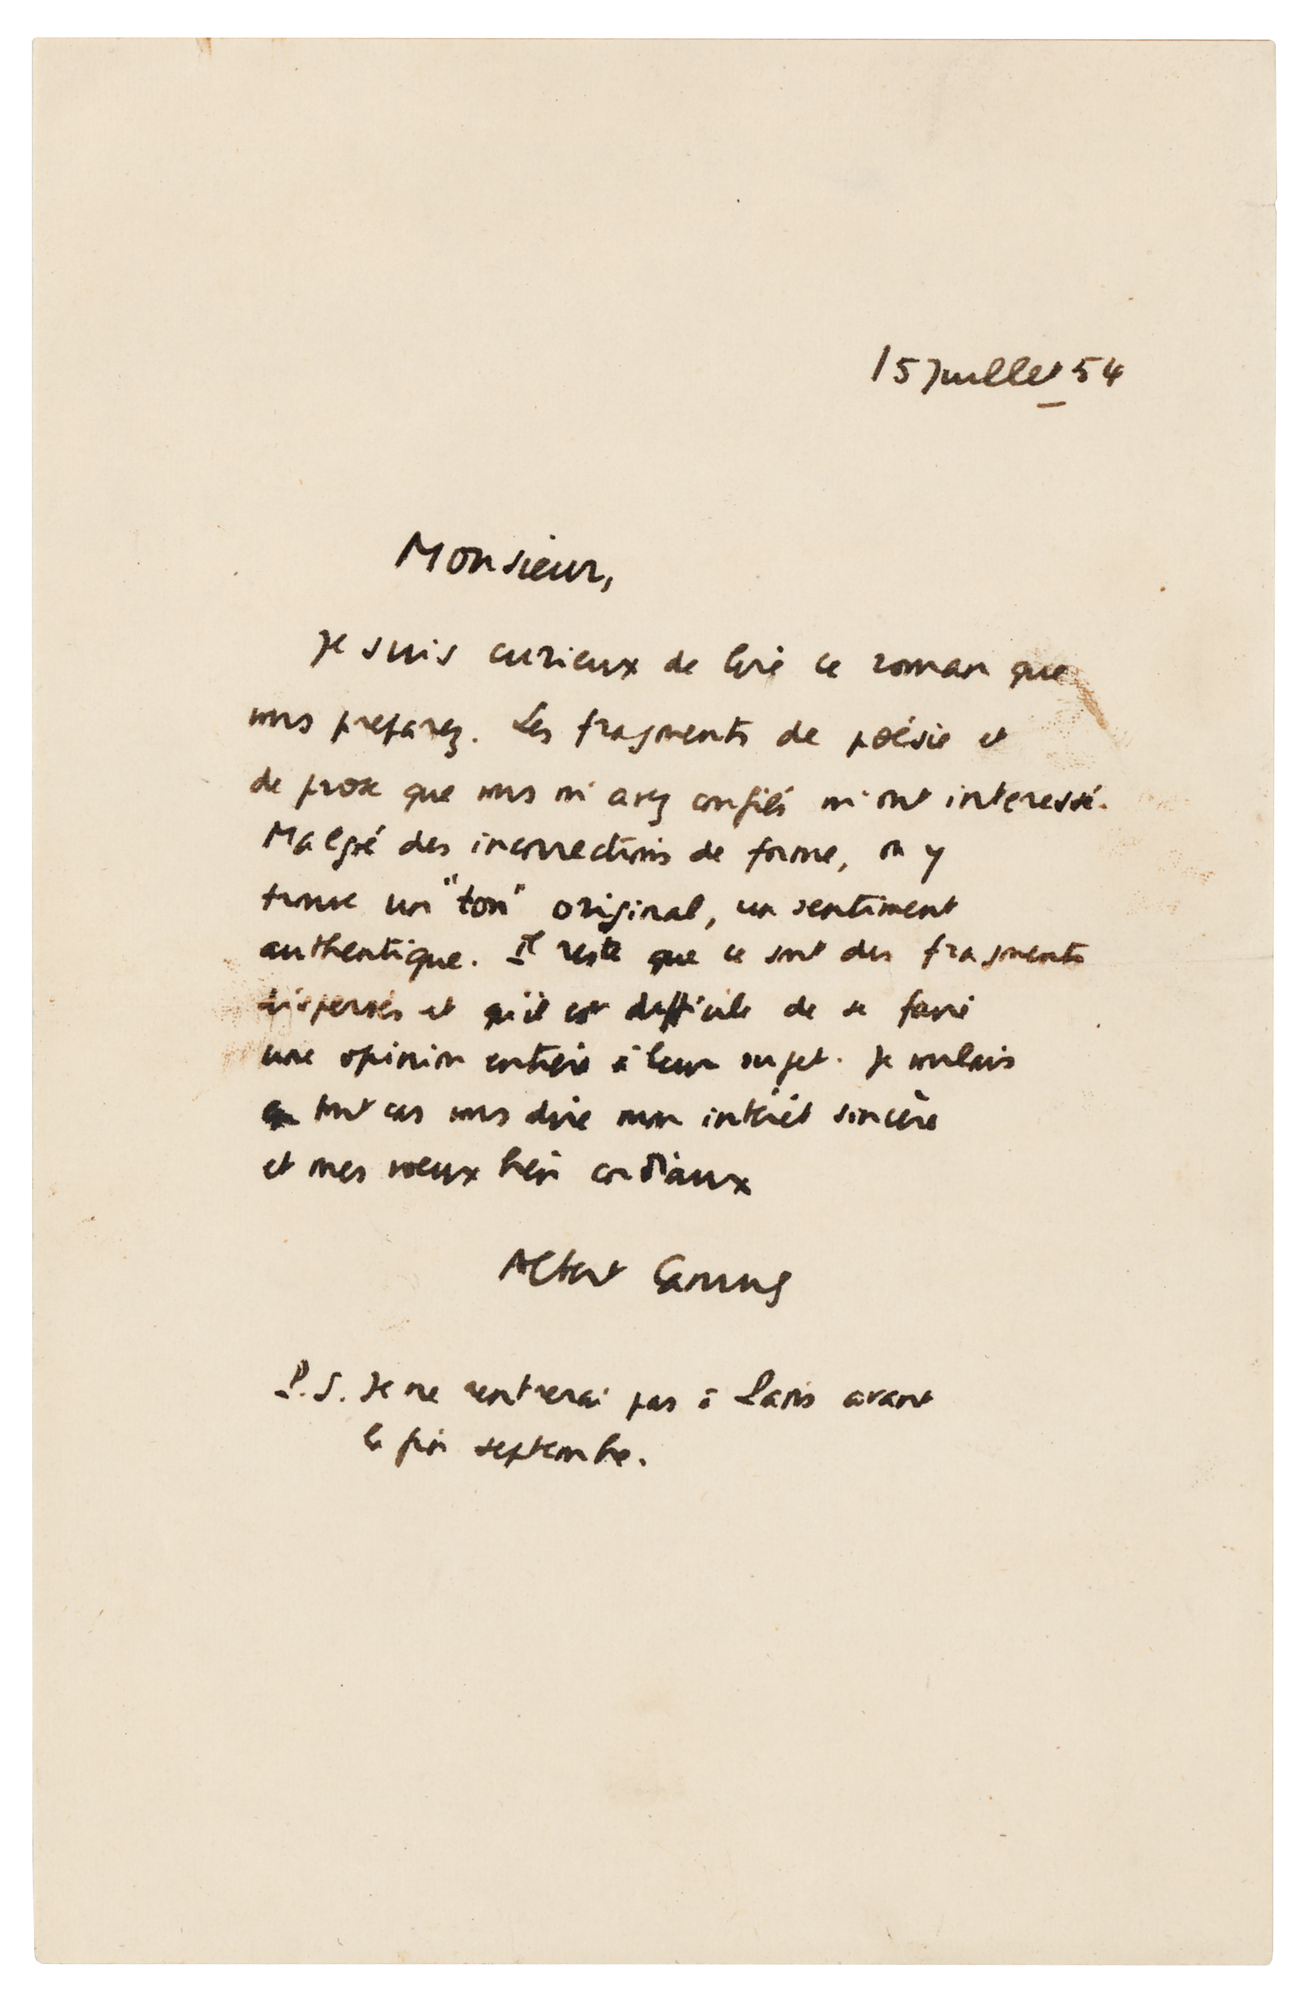 15 Juillet 54
Monsieur,
Je suis curieux de lire ce roman que
vous preparez. Les fragments de poésie et
de prose que vous m'avez confiés m'ont interessé.
Malgré des incorrections de forme, on y
trouve un "ton" original, un sentiment
authentique. Il reste que ce sont des fragments
dispersés et qu'il est difficile de se faire
une opinion entière à leur sujet. Je voulais
en tout cas vous dire mon intérêt sincère
et mes voeux bien cordiaux
Albert Camus
P.S. Je ne rentrerai pas à Paris avant
la fin septembre.